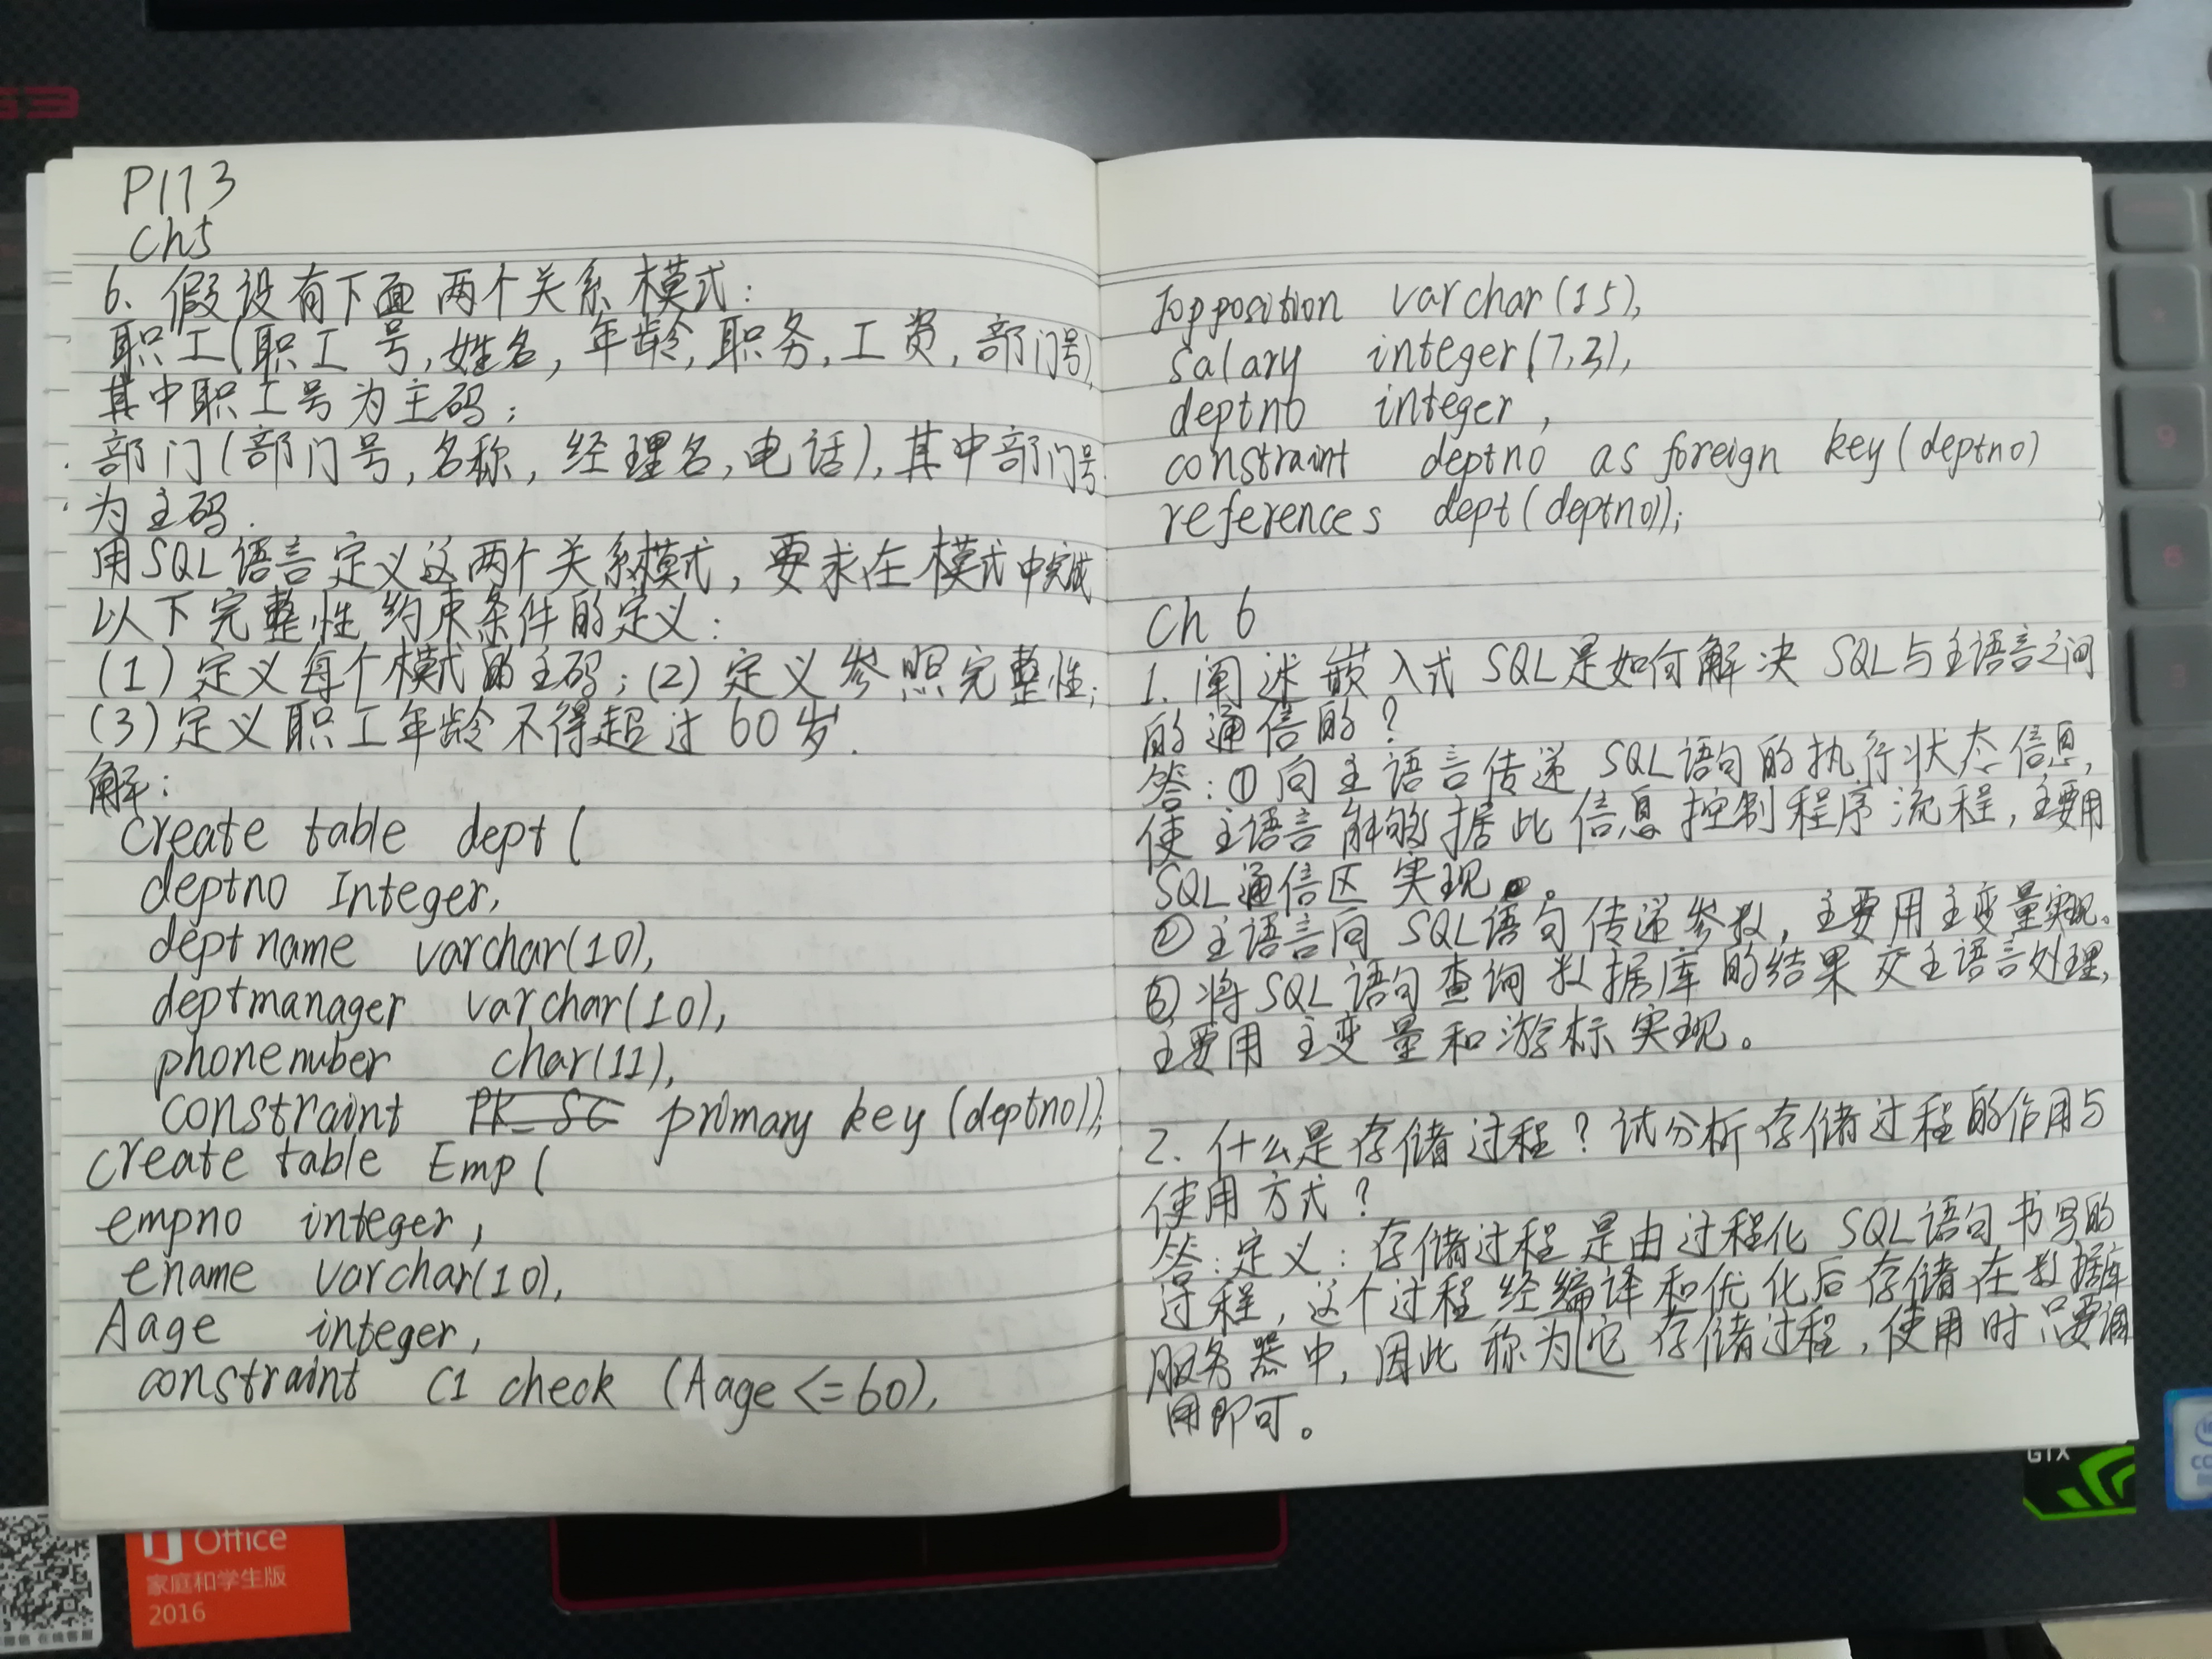 P173
Ch5
6、假设有下面两个关系模式：
职工(职工号,姓名,年龄,职务,工资,部门号),
其中职工号为主码；
部门(部门号,名称,经理名,电话),其中部门号
为主码.
用SQL语言定义这两个关系模式，要求在模式中完成
以下完整性约束条件的定义：
(1)定义每个模式的主码；(2)定义参照完整性；
(3)定义职工年龄不得超过60岁.
解：
Create table dept(
deptno Integer,
deptname varchar(10),
deptmanager varchar(10),
phonenuber char(11),
constraint PK_SC primary key(deptno));
Create table Emp(
empno integer,
ename varchar(10),
Aage integer,
constraint C1 check (Aage<=60),
Jopposition varchar(15),
salary integer(7,2),
deptno integer,
constraint deptno as foreign key(deptno)
references dept(deptno));
Ch 6
1.阐述嵌入式SQL是如何解决SQL与主语言之间
的通信的？
答：①向主语言传递SQL语句的执行状态信息，
使主语言能够据此信息控制程序流程，主要用
SQL通信区实现。
②主语言向SQL语句传递参数，主要用主变量实现。
③将SQL语句查询数据库的结果交主语言处理，
主要用主变量和游标实现。
2、什么是存储过程？试分析存储过程的作用与
使用方式？
答：定义：存储过程是由过程化SQL语句书写的
过程，这个过程经编译和优化后存储在数据库
服务器中，因此称为它存储过程，使用时只要调
用即可。
Office
家庭和学生版
2016
GTX